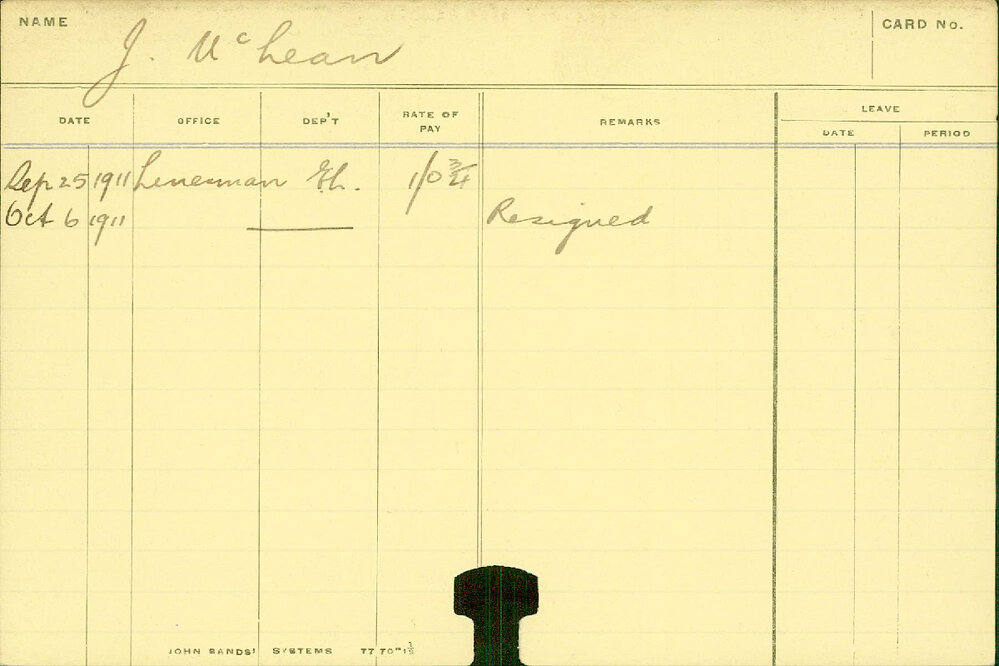 NAME J. McLean CARD No.
DATE OFFICE DEP'T RATE OF PAY REMARKS LEAVE
DATE PERIOD
Sep 25 1911 Linesman 1/0 3/4
Oct 6 1911 Resigned
JOHN SANDS' SYSTEMS